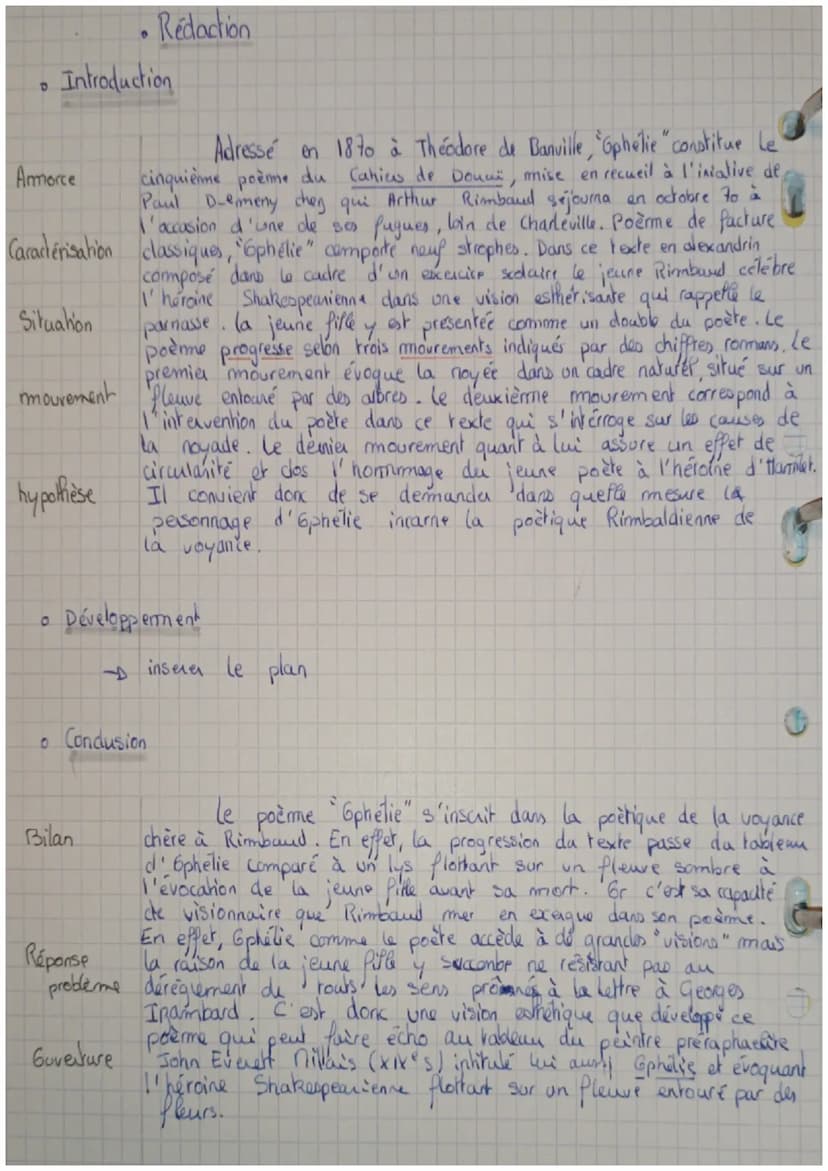 • Rédaction
Introduction
Adressé en 1870 à Théodore de Banville, "Ophélie" constitue le
Amorce cinquième poème du Cahiers de Douai, mise en recueil à l'iniative de
Paul Demeny chez qui Arthur Rimbaud séjourna en octobre 70 à
l'occasion d'une de ses fugues, loin de Charleville. Poème de facture
Caractérisation classiques, "Ophélie" comporte neuf strophes. Dans ce texte en alexandrin
composé dans le cadre d'un exercice scolaire le jeune Rimbaud célèbre
l'héroïne Shakespearienne dans une vision esthétisante qui rappelle le
Situation parnasse. la jeune fille y est présentée comme un double du poète. Le
poème progresse selon trois mouvements indiqués par des chiffres romans. Le
premier mouvement évoque la noyée dans un cadre naturel, situé sur un
mouvement fleuve entouré par des arbres. Le deuxième mouvement correspond à
l'intervention du poète dans ce texte qui s'intérroge sur les causes de
la noyade. Le dernier mouvement quant à lui assure un effet de
circularité et clos l'hommage du jeune poète à l'héroïne d'Hamlet.
hypothèse Il convient donc de se demander dans quelle mesure la
personnage d'Ophélie incarne la poètique Rimbaldienne de
la voyance.
Développement
→ inserer le plan
Conclusion
Le poème "Ophélie" s'inscrit dans la poètique de la voyance
Bilan chère à Rimbaud. En effet, la progression du texte passe du tableau
d'Ophélie comparé à un lys flottant sur un fleuve sombre à
l'évocation de la jeune fille avant sa mort. Or c'est sa capacité
de visionnaire que Rimbaud met en exergue dans son poème.
En effet, Ophélie comme le poète accède à de grandes "visions" mais
Réponse la raison de la jeune fille y succombe ne résistant pas au
problème dérèglement de touts les sens à la lettre à Georges
Izambard. C'est donc une vision esthétique que développe ce
poème qui peut faire écho au tableau du peintre préraphaélite
Ouverture John Everett Millais (XIXe s) intitulé lui aussi Ophélie et évoquant
l'héroïne Shakespearienne flottant sur un fleuve entouré par des
fleurs.